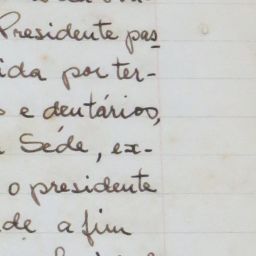 Presidente pas
ida por ter-
s e dentários,
Séde, ex-
o presidente
de a fim